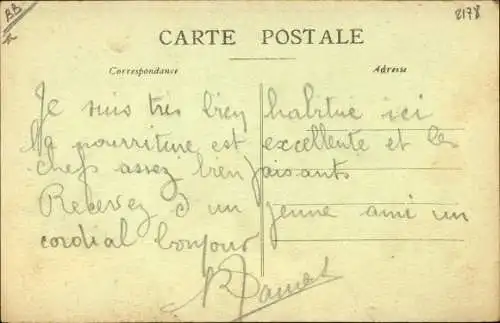 BB
2178
CARTE POSTALE
Correspondance
Adresse
Je suis très bien habitué ici
la nourriture est excellente et les
chefs assez bien faisants
Recevez d un jeune ami un
cordial bonjour